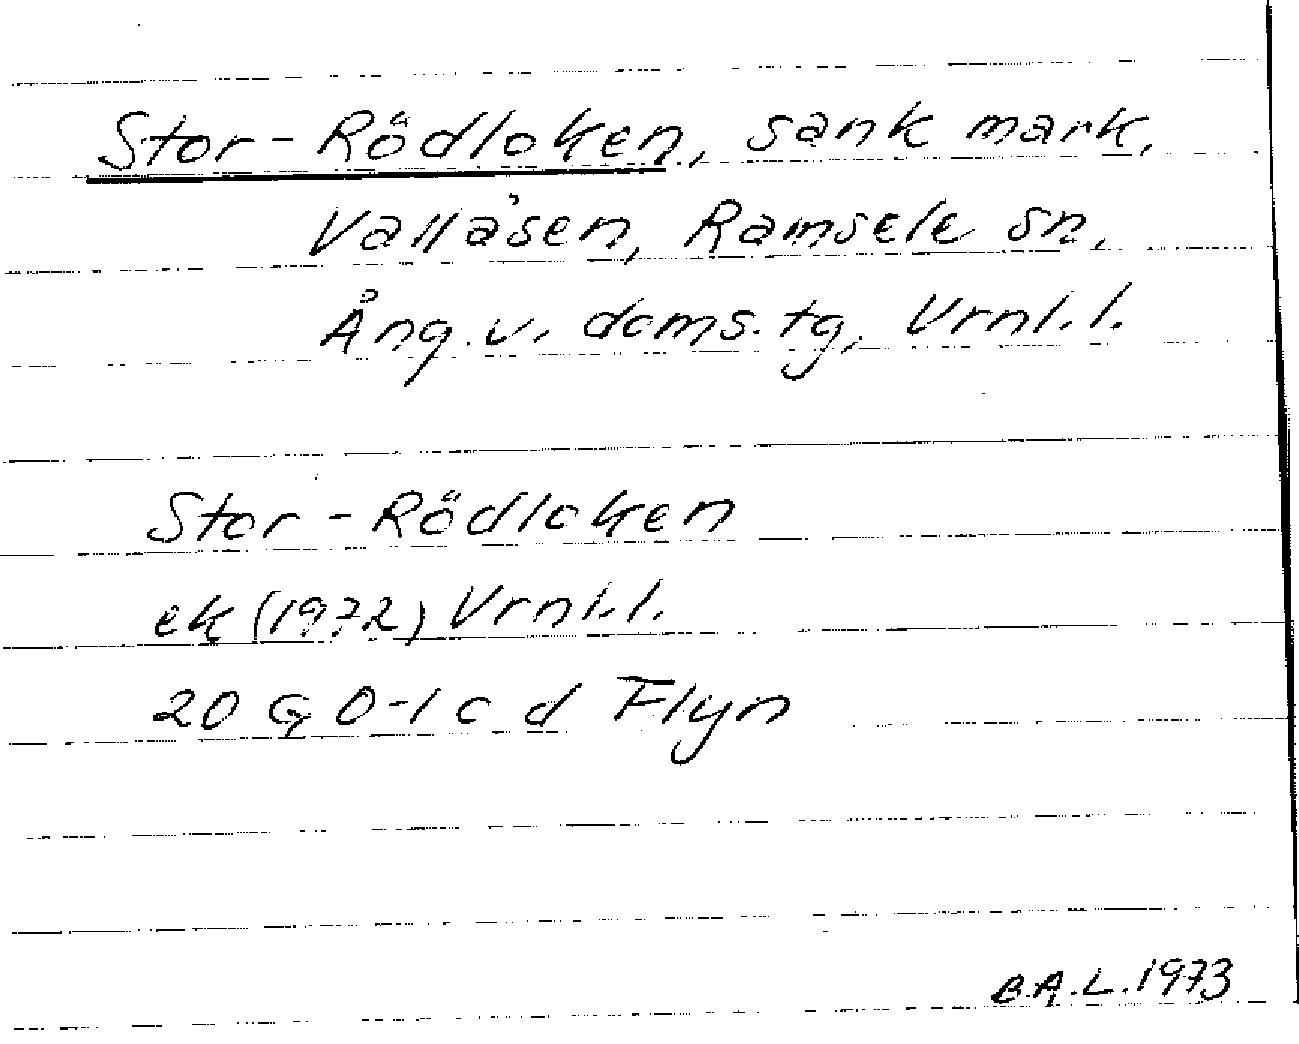 Stor-Rödloken, sank mark,
Vallåsen, Ramsele sn,
Ång.v. doms.tg, Vrnl.l.
Stor-Rödloken
ek (1972) Vrnl.l.
20 G 0-1 c d Flyn
B.A.L. 1973